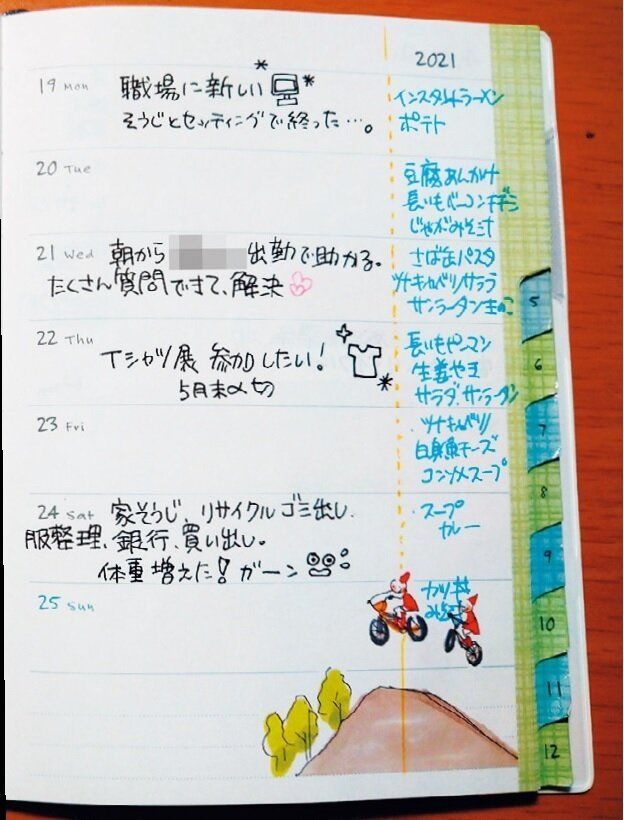 2021
19 Mon
職場に新しい
そうじとセッティングで終った…。
インスタントラーメン
ポテト
20 Tue
豆腐あんかけ
長いもベーコン
じゃがみそ汁
21 Wed 朝から 出勤で助かる。
たくさん質問できて、解決
さば缶パスタ
ツナキャベツサラダ
サンラータン
22 Thu
Tシャツ展 参加したい!
5月末〆切
長いもピーマン
生姜やき
サラダ、サンラータン
23 Fri
ツナキャベツ
白身魚チーズ
コンソメスープ
24 Sat 家そうじ、リサイクルゴミ出し、
服整理、銀行、買い出し。
体重増えた! ガーン
・スープ
カレー
25 Sun
カツ丼
5
6
7
8
9
10
11
12